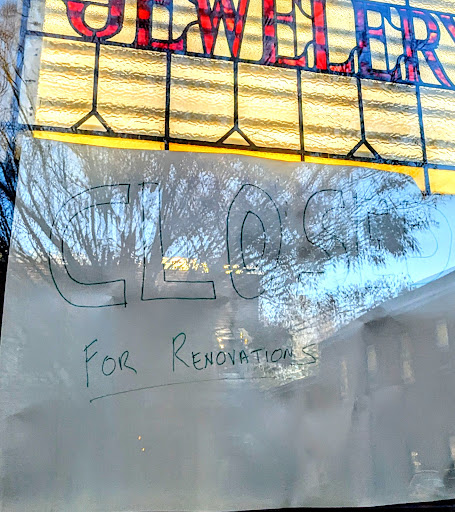 JEWELERY
CLOSED
FOR RENOVATIONS